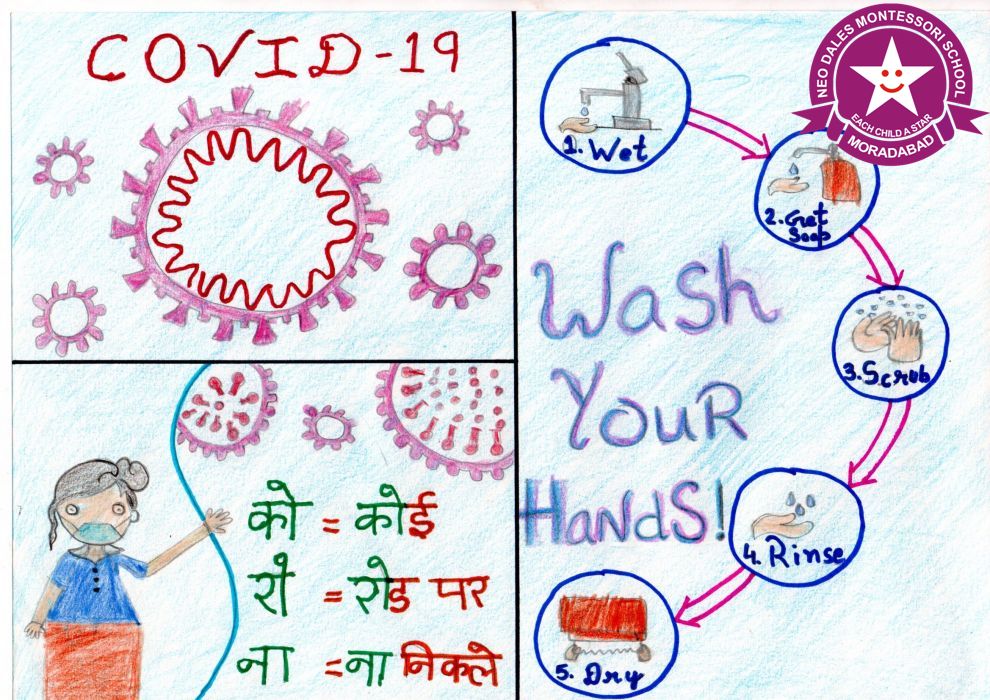 COVID-19
को = कोई
रो = रोड पर
ना = ना निकले
1. Wet
2. Get
Soap
3. Scrub
4. Rinse
5. Dry
Wash
Your
Hands!
NEO DALES MONTESSORI SCHOOL
EACH CHILD A STAR
MORADABAD